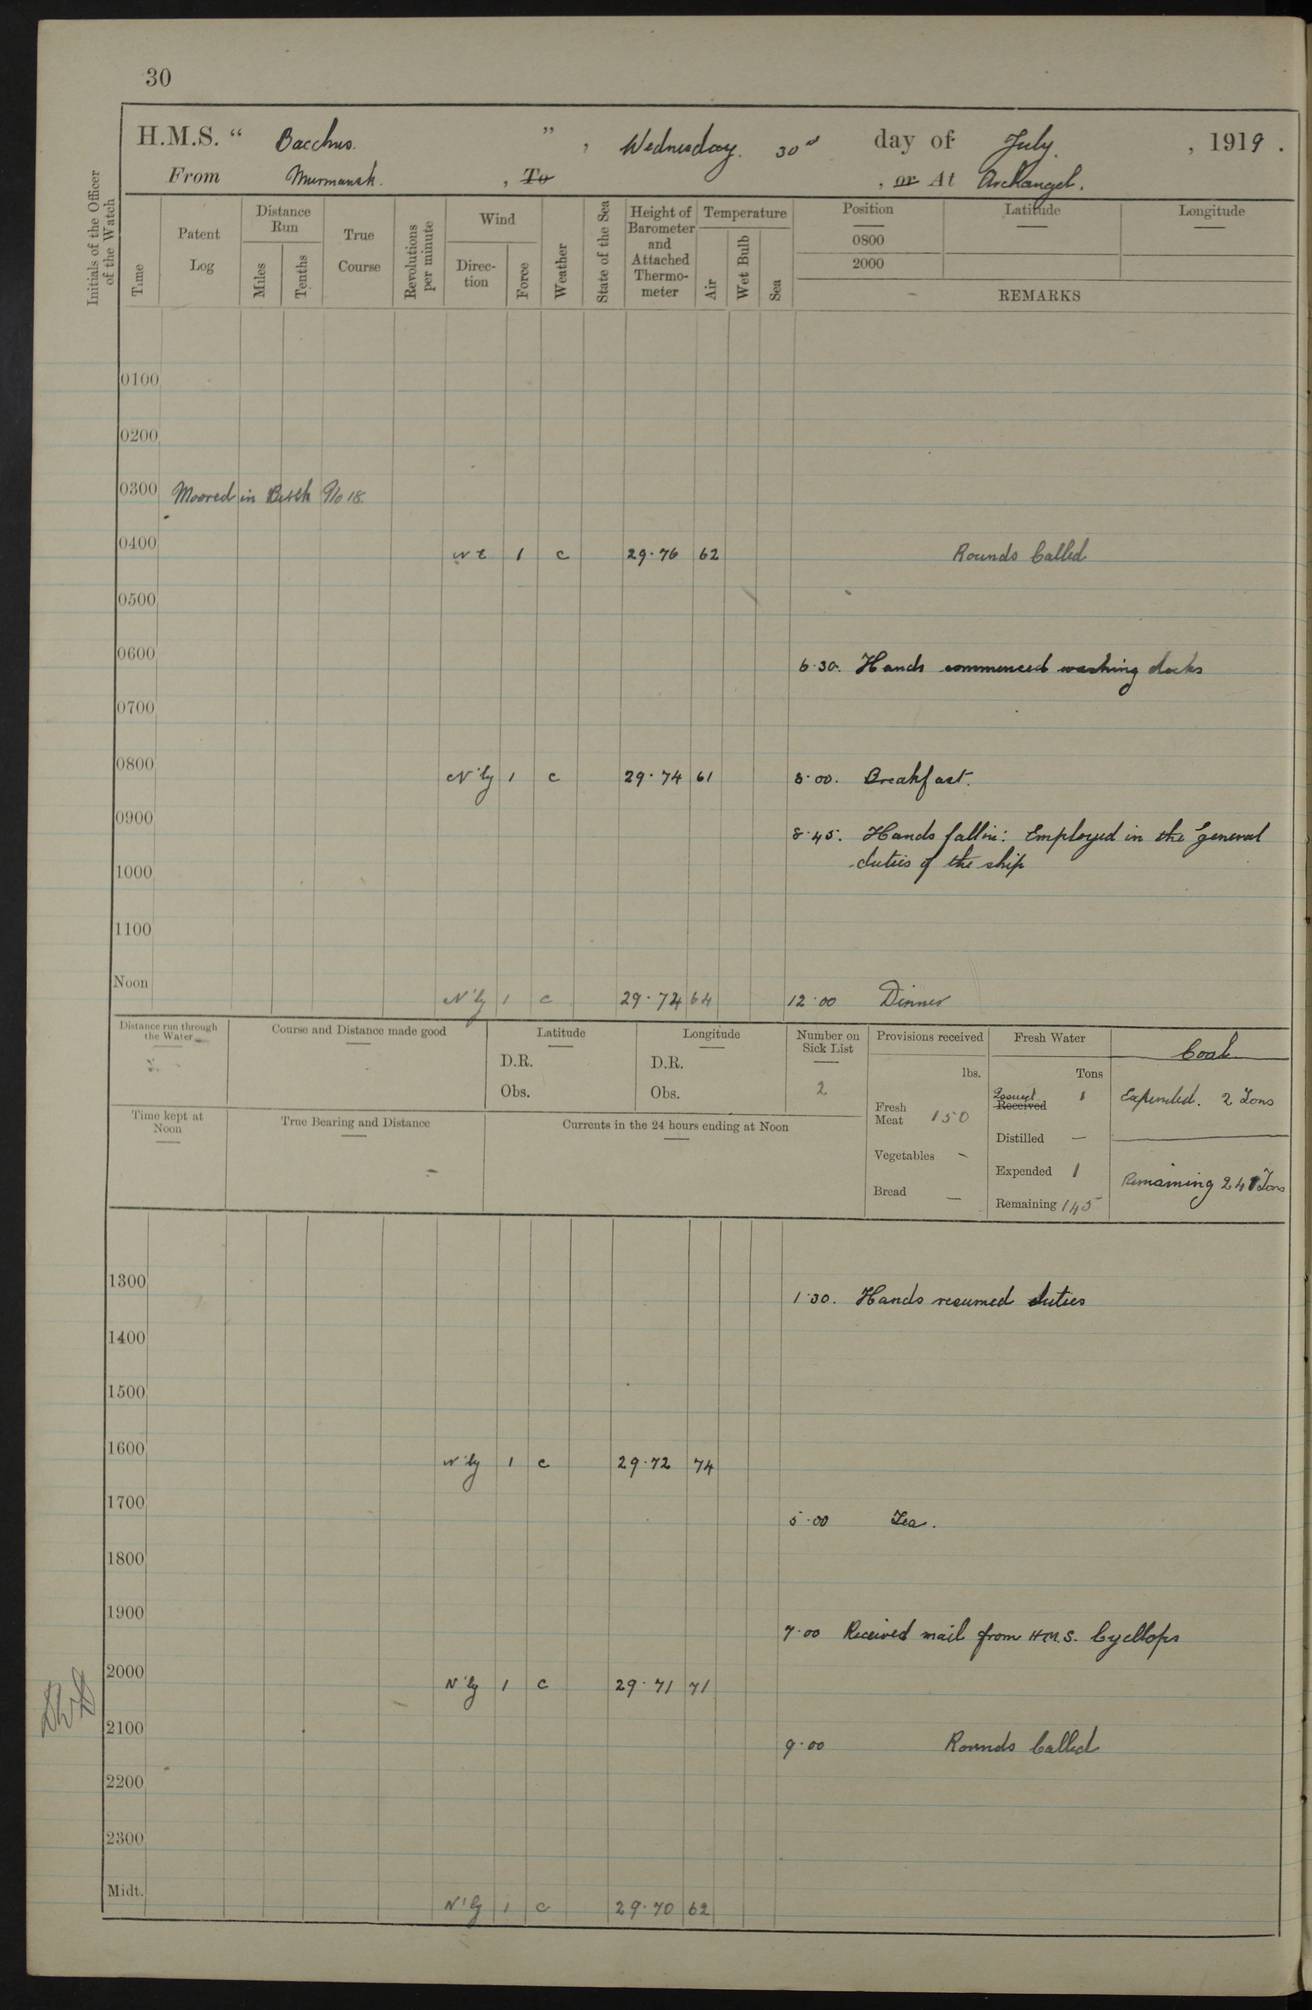 30
H.M.S. “ Bacchus. ” , Wednesday. 30th day of July. , 1919 .
From Murmansk. , To , or At Archangel.
Initials of the Officer of the Watch
Time
Patent Log
Distance Run
Miles
Tenths
True Course
Revolutions per minute
Wind
Direction
Force
Weather
State of the Sea
Height of Barometer and Attached Thermometer
Temperature
Air
Wet Bulb
Sea
Position
0800
2000
Latitude
Longitude
REMARKS
0100
0200
0300 Moored in Berth No 18.
0400 NE 1 c 29.76 62 Rounds Called
0500
0600
6.30. Hands commenced washing decks
0700
0800 N'ly 1 c 29.74 61 8.00. Breakfast.
0900
8.45. Hands fallin: Employed in the General
duties of the ship
1000
1100
Noon N'ly 1 c 29.72 64 12.00 Dinner
Distance run through the Water
Course and Distance made good
Latitude
D.R.
Obs.
Longitude
D.R.
Obs.
Number on Sick List
2
Provisions received
lbs.
Fresh Meat 150
Vegetables -
Bread —
Fresh Water
Tons
Received 1
Distilled —
Expended 1
Remaining 145
Coal
Expended. 2 Tons
Remaining 241 Tons
Time kept at Noon
True Bearing and Distance
Currents in the 24 hours ending at Noon
1300
1.30. Hands resumed duties
1400
1500
1600 N'ly 1 c 29.72 74
1700
5.00 Tea.
1800
1900
7.00 Received mail from H.M.S. Cycllops
2000 N'ly 1 c 29.71 71
2100
9.00 Rounds Called
2200
2300
Midt. N'ly 1 c 29.70 62